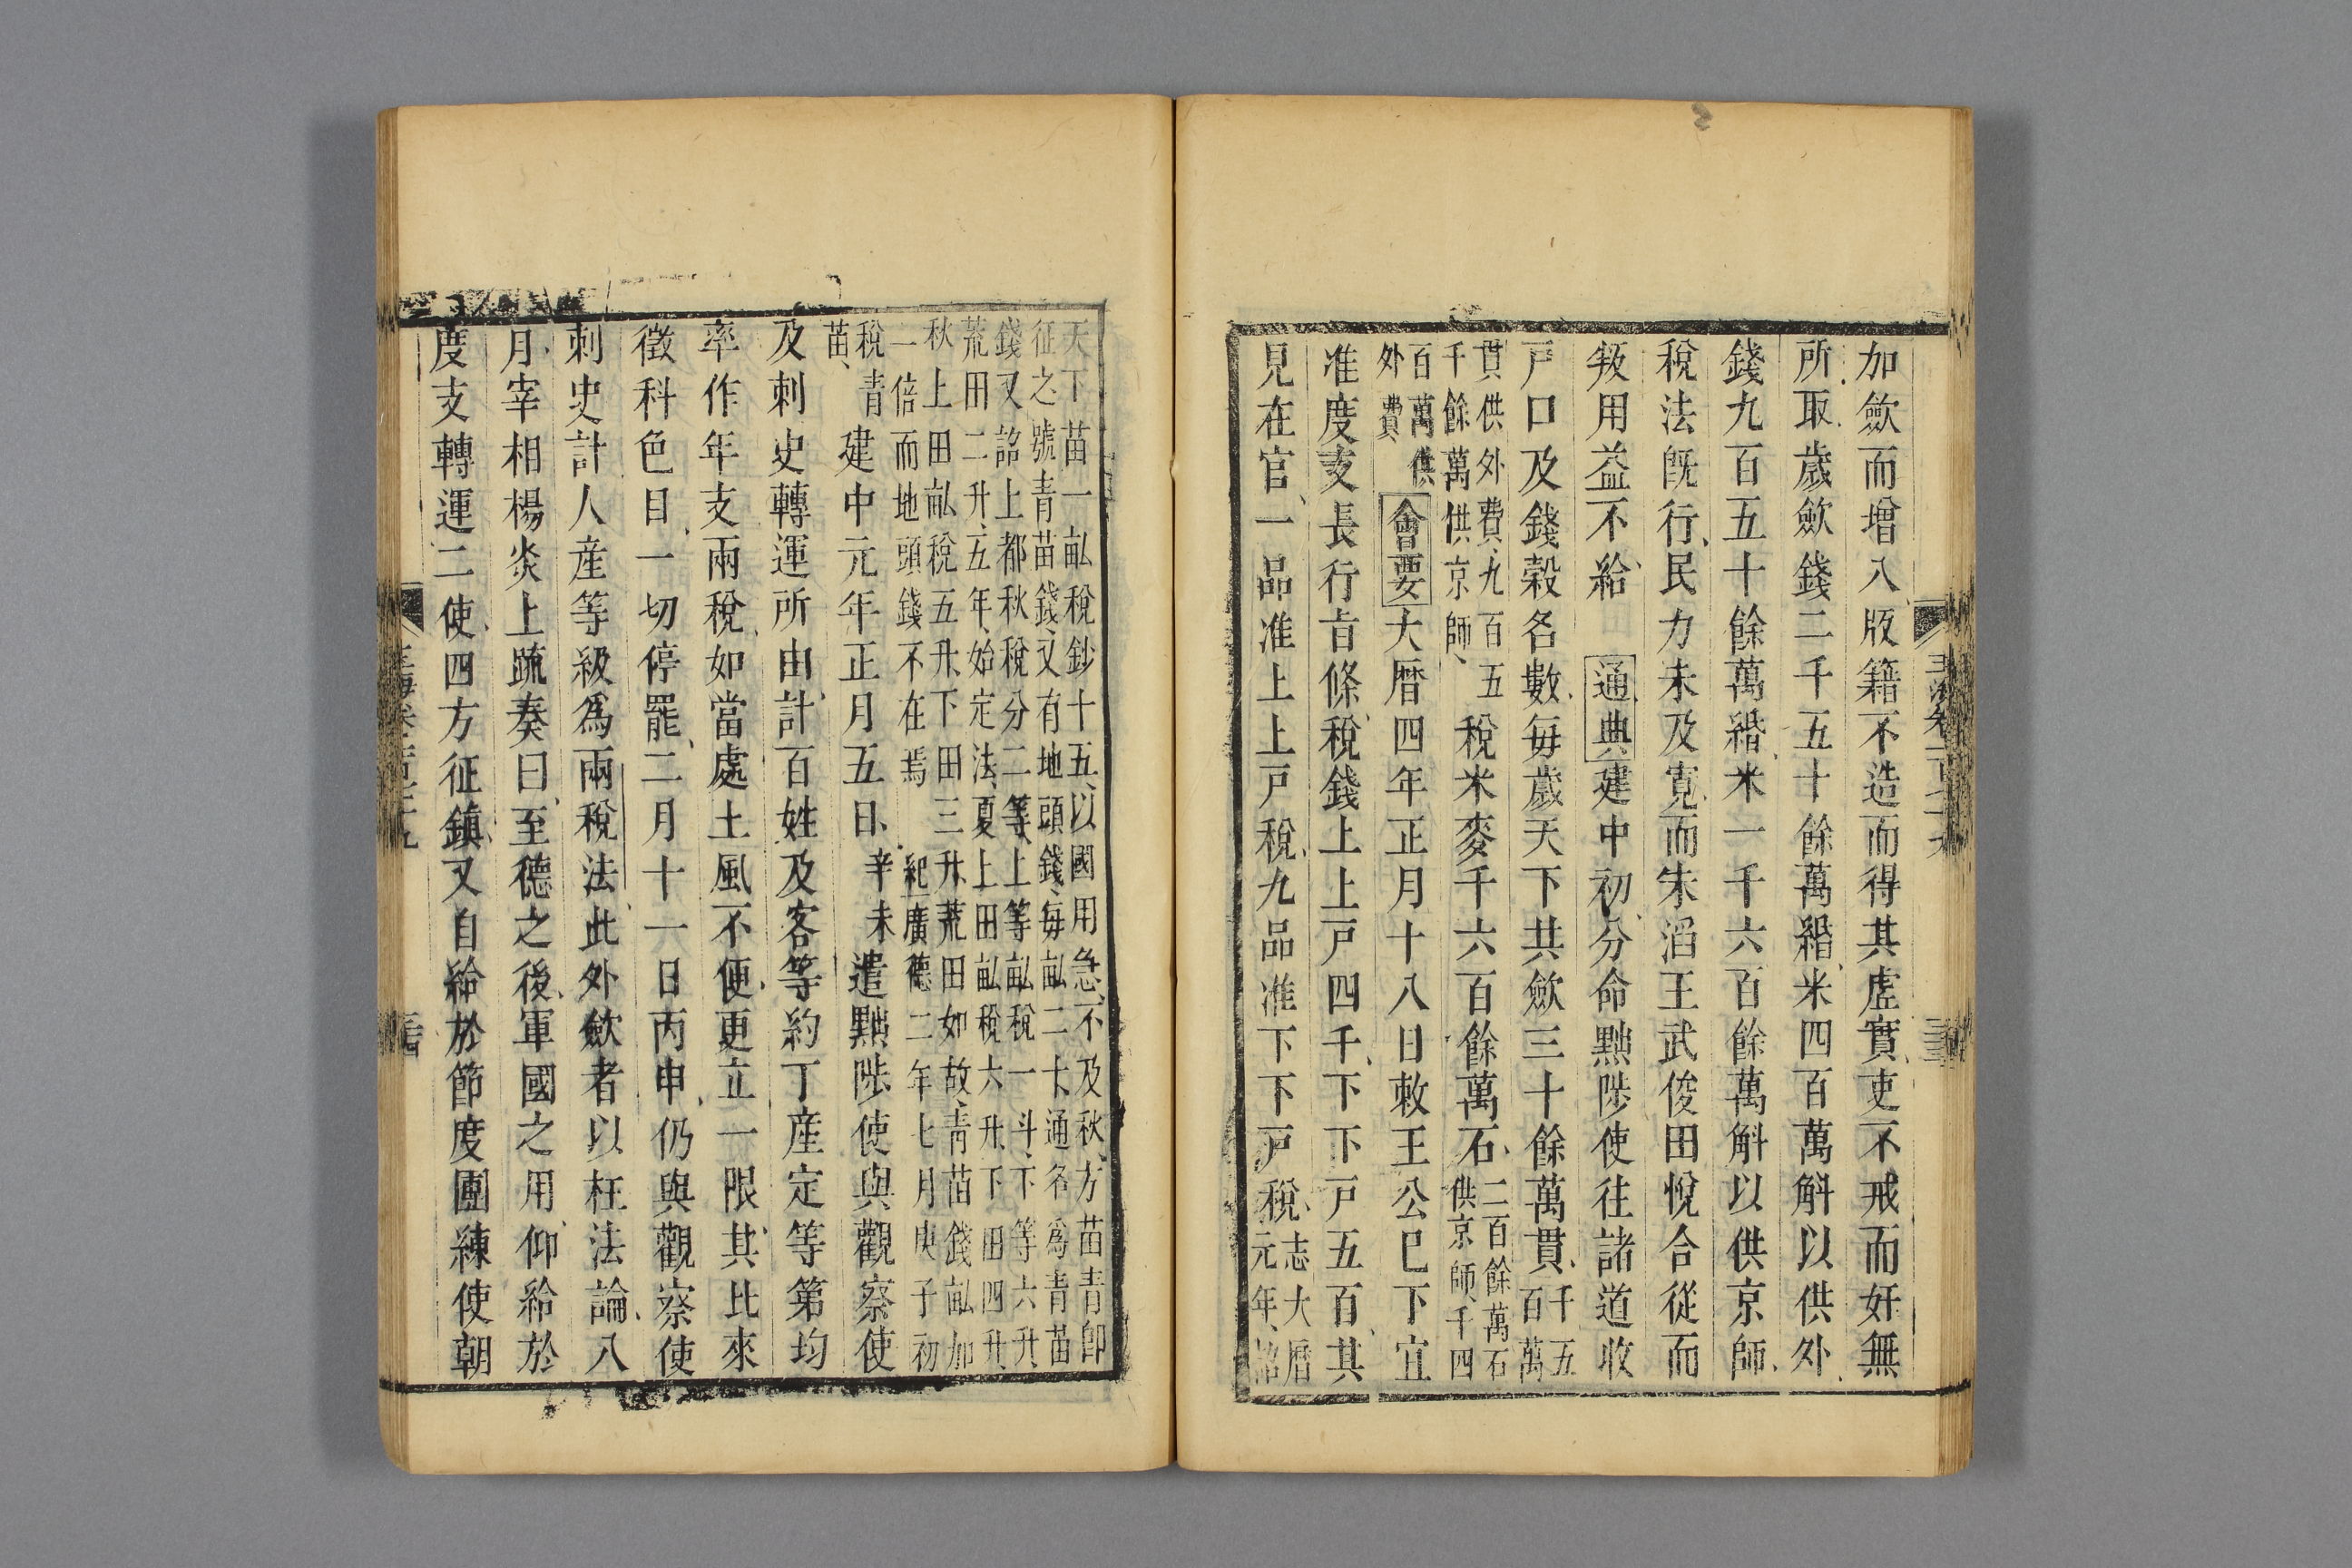 加歛而增入版籍不造而得其虛實吏不戒而奸無
所取歲歛錢二千五十餘萬緡米四百萬斛以供外
錢九百五十餘萬緡米一千六百餘萬斛以供京師
稅法旣行民力未及寛而朱滔王武俊田悅合從而
叛用益不給 通典建中初分命黜陟使往諸道收
戸口及錢榖名數毎歲天下共歛三十餘萬貫千五
百萬
貫供外費九百五
千餘萬供京師稅米麥千六百餘萬石二百餘萬石
供京師千四
百萬供
外費會要大曆四年正月十八日敕王公已下宜
准度支長行旨條稅錢上上戸四千下下戸五百其
見在官一品准上上戸稅九品准下下戸稅志大曆
元年詔
天下苗一畝稅鈔十五以國用急不及秋方苗青卽
征之號青苗錢又有地頭錢毎畝二十通名爲青苗
錢又詔上都秋稅分二等上等畝稅一斗下等六升
荒田二升五年始定法夏上田畝稅六升下田四升
秋上田畝稅五升下田三升荒田如故青苗錢畝加
一倍而地頭錢不在焉 紀廣德二年七月庚子初
稅青
苗建中元年正月五日辛未遣黜陟使與觀察使
及刺史轉運所由計百姓及客等約丁産定等第均
率作年支兩稅如當處土風不便更立一限其比來
徵科色目一切停罷二月十一日丙申仍與觀察使
刺史計人産等級爲兩稅法此外歛者以枉法論八
月宰相楊炎上䟽奏曰至德之後軍國之用仰給於
度支轉運二使四方征鎮又自給於節度團練使朝